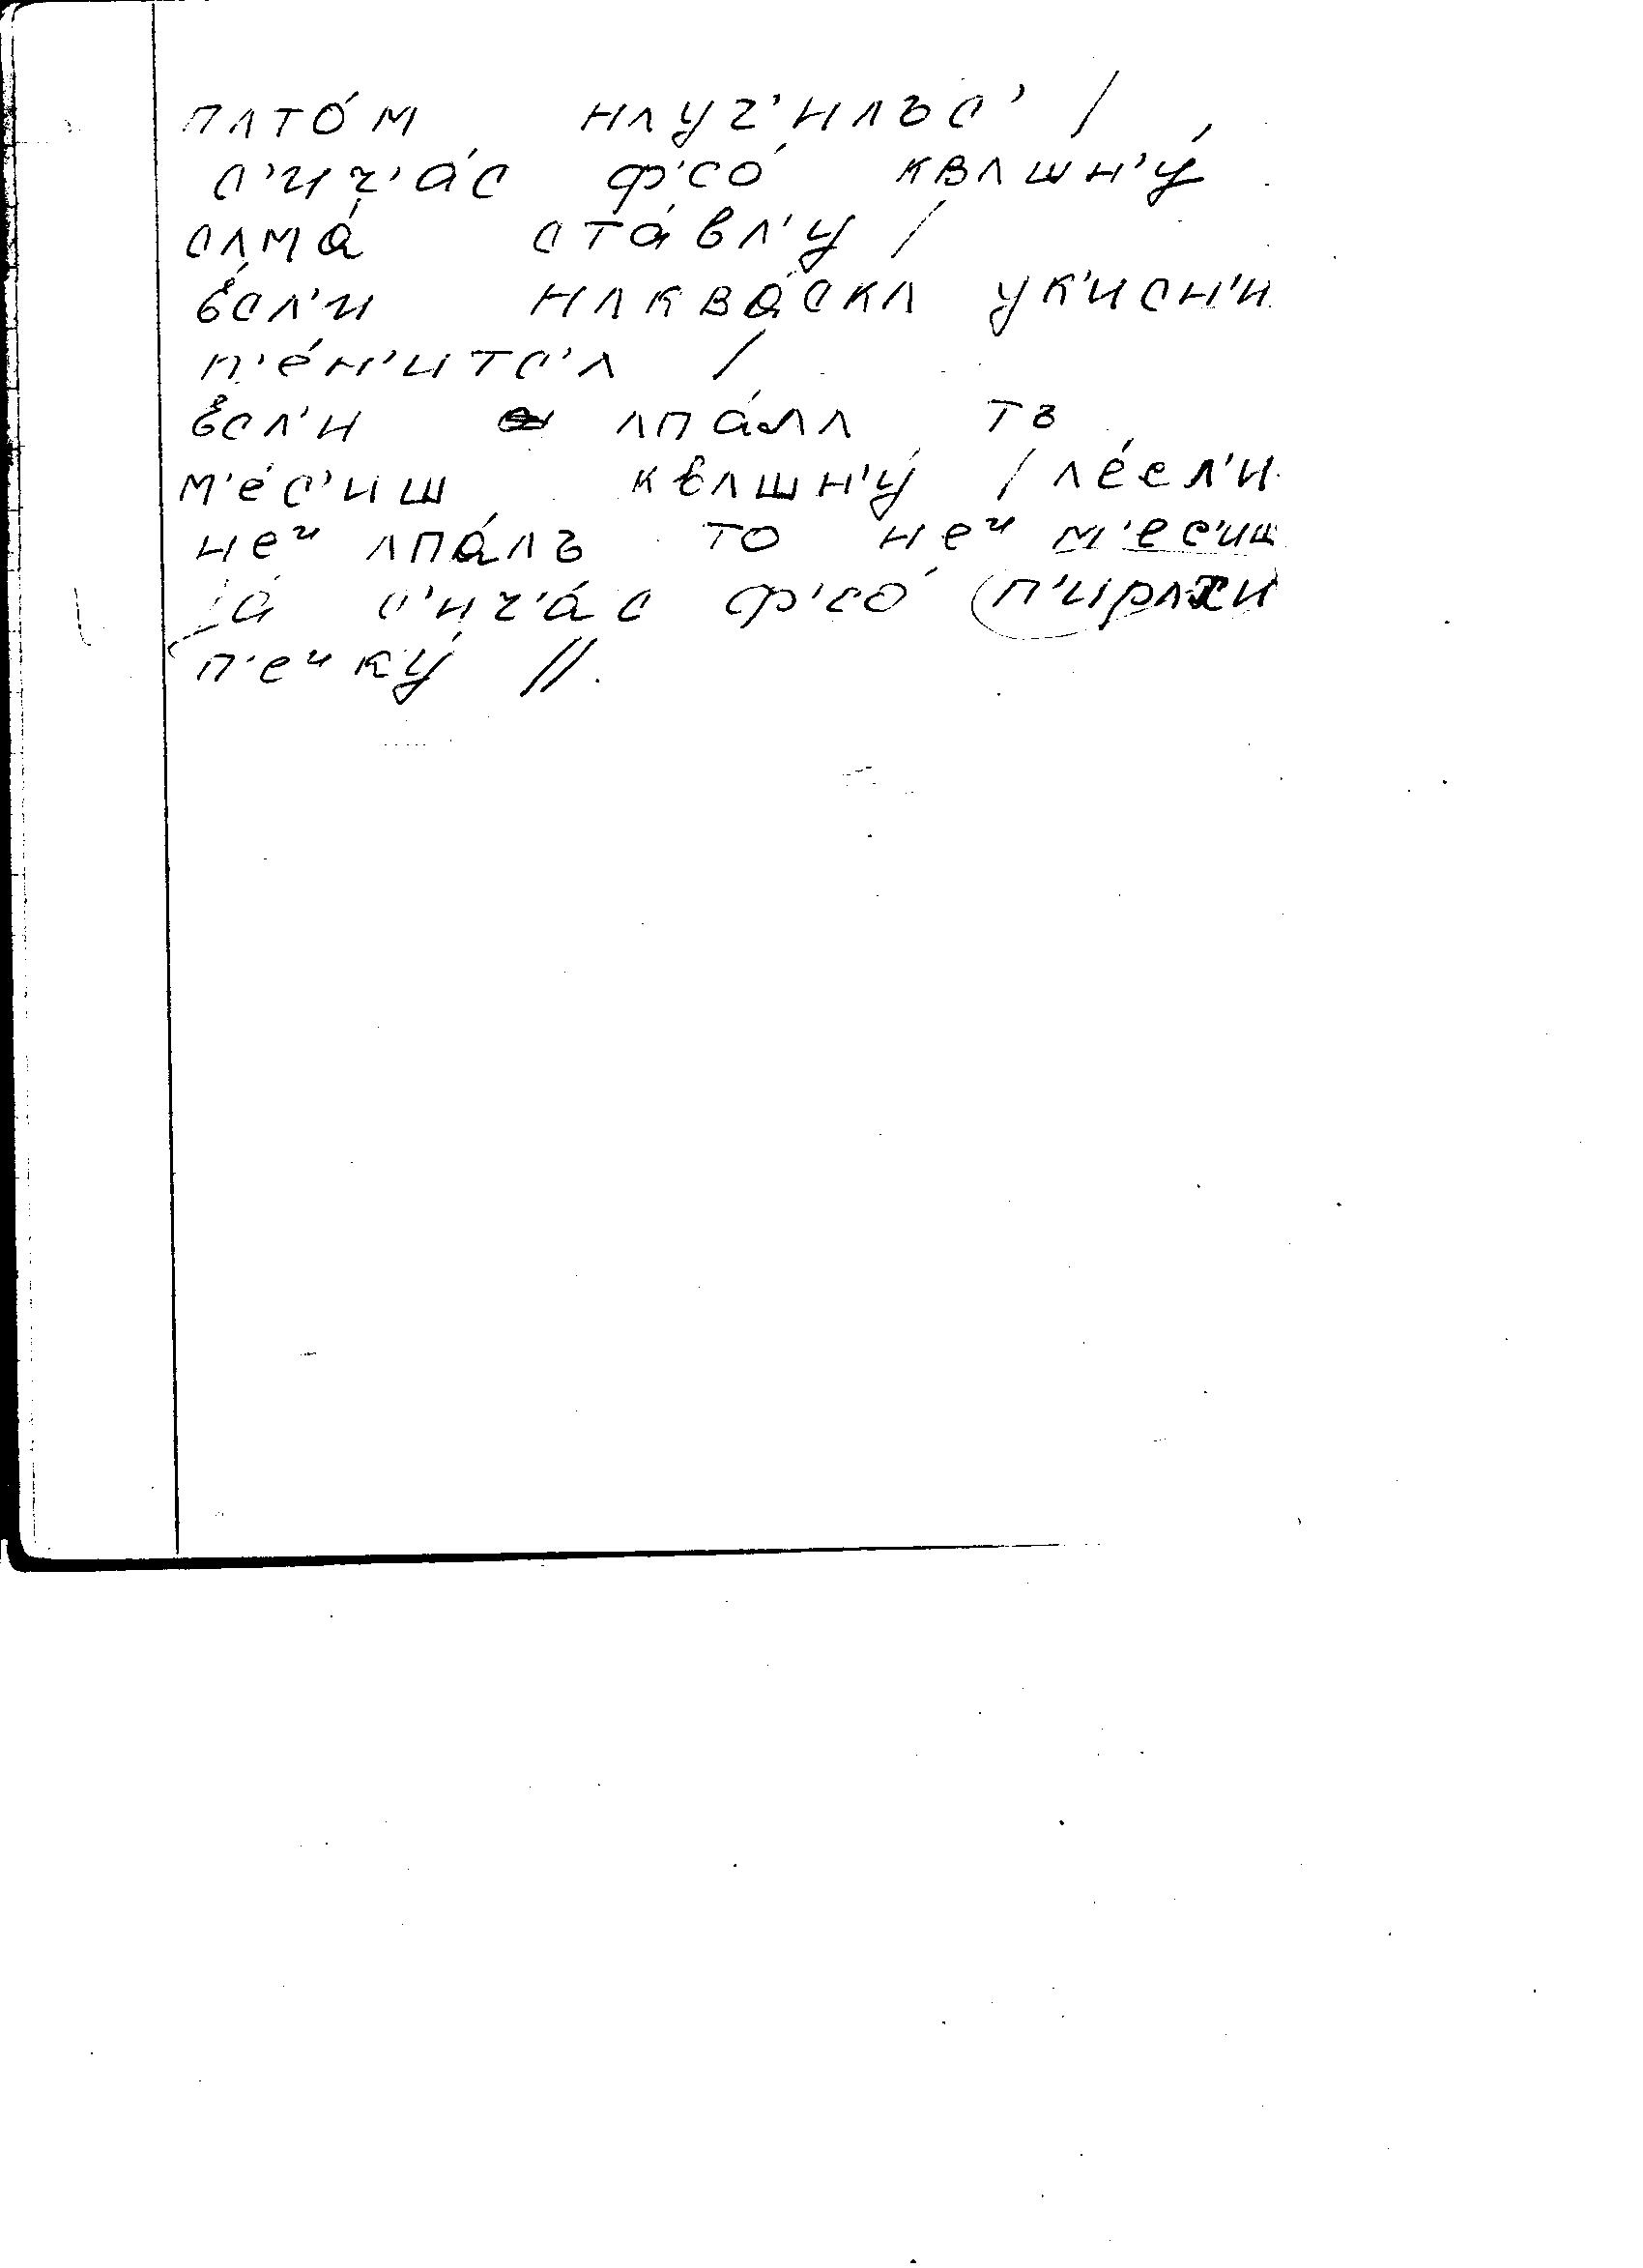 пʌто́м нʌуч'илъс' /
с'ич'а́с ф'со́ квʌшн'у́
сʌма́ ста́вл'у /
е́сл'и нʌква́скʌ ук'исн'и
п'е́н'итс'ʌ /
е́сл'и ʌпа́лʌ тъ
м'е́с'иш квʌшн'у́ / ʌе́сл'и
неᶦ ʌпа́лъ то неᶦ м'ес'иш
jа с'ич'а́с ф'со́ п'ирʌхи
п'еᶦку́ //